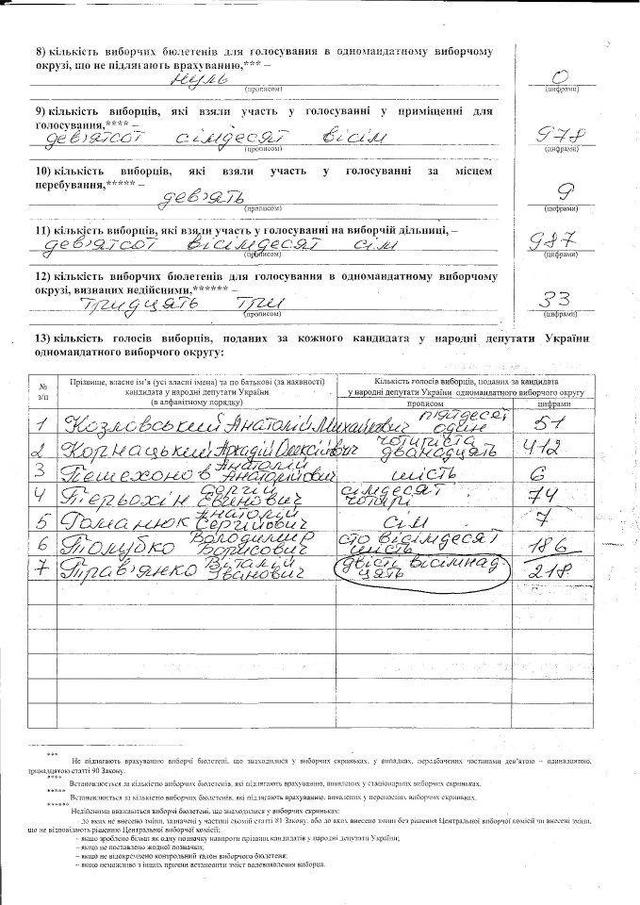 8) кількість виборчих бюлетенів для голосування в одномандатному виборчому
окрузі, що не підлягають врахуванню,*** –
нуль
0
(прописом)
(цифрами)
9) кількість виборців, які взяли участь у голосуванні у приміщенні для
голосування,**** –
дев'ятсот сімдесят вісім
978
(прописом)
(цифрами)
10) кількість виборців, які взяли участь у голосуванні за місцем
перебування,***** –
дев'ять
9
(прописом)
(цифрами)
11) кількість виборців, які взяли участь у голосуванні на виборчій дільниці, –
дев'ятсот вісімдесят сім
987
(прописом)
(цифрами)
12) кількість виборчих бюлетенів для голосування в одномандатному виборчому
окрузі, визнаних недійсними,****** –
тридцять три
33
(прописом)
(цифрами)
13) кількість голосів виборців, поданих за кожного кандидата у народні депутати України
одномандатного виборчого округу:
№
з/п
Прізвище, власне ім'я (усі власні імена) та по батькові (за наявності)
кандидата у народні депутати України
(в алфавітному порядку)
Кількість голосів виборців, поданих за кандидата
у народні депутати України одномандатного виборчого округу
прописом
цифрами
1 Козловський Анатолій Михайлович п'ятдесят один 51
2 Корнацький Аркадій Олексійович чотириста дванадцять 412
3 Пешехонов Анатолій Анатолійович шість 6
4 Перьохін Сергій Євгенович сімдесят чотири 74
5 Романюк Анатолій Сергійович сім 7
6 Толубко Володимир Борисович сто вісімдесят шість 186
7 Трав'янко Віталій Іванович двісті вісімнадцять 218
***
Не підлягають врахуванню виборчі бюлетені, що знаходилися у виборчих скриньках, у випадках, передбачених частинами дев'ятою – одинадцятою,
тринадцятою статті 90 Закону.
****
Встановлюється за кількістю виборчих бюлетенів, які підлягають врахуванню, виявлених у стаціонарних виборчих скриньках.
*****
Встановлюється за кількістю виборчих бюлетенів, які підлягають врахуванню, виявлених у переносних виборчих скриньках.
******
Недійсними вважаються виборчі бюлетені, що знаходилися у виборчих скриньках:
– до яких не внесено зміни, зазначені у частині сьомій статті 81 Закону, або до яких внесено зміни без рішення Центральної виборчої комісії чи внесені зміни,
що не відповідають рішенню Центральної виборчої комісії;
– якщо зроблено більш як одну позначку навпроти прізвищ кандидатів у народні депутати України;
– якщо не поставлено жодної позначки;
– якщо не відокремлено контрольний талон виборчого бюлетеня;
– якщо неможливо з інших причин встановити зміст волевиявлення виборця.